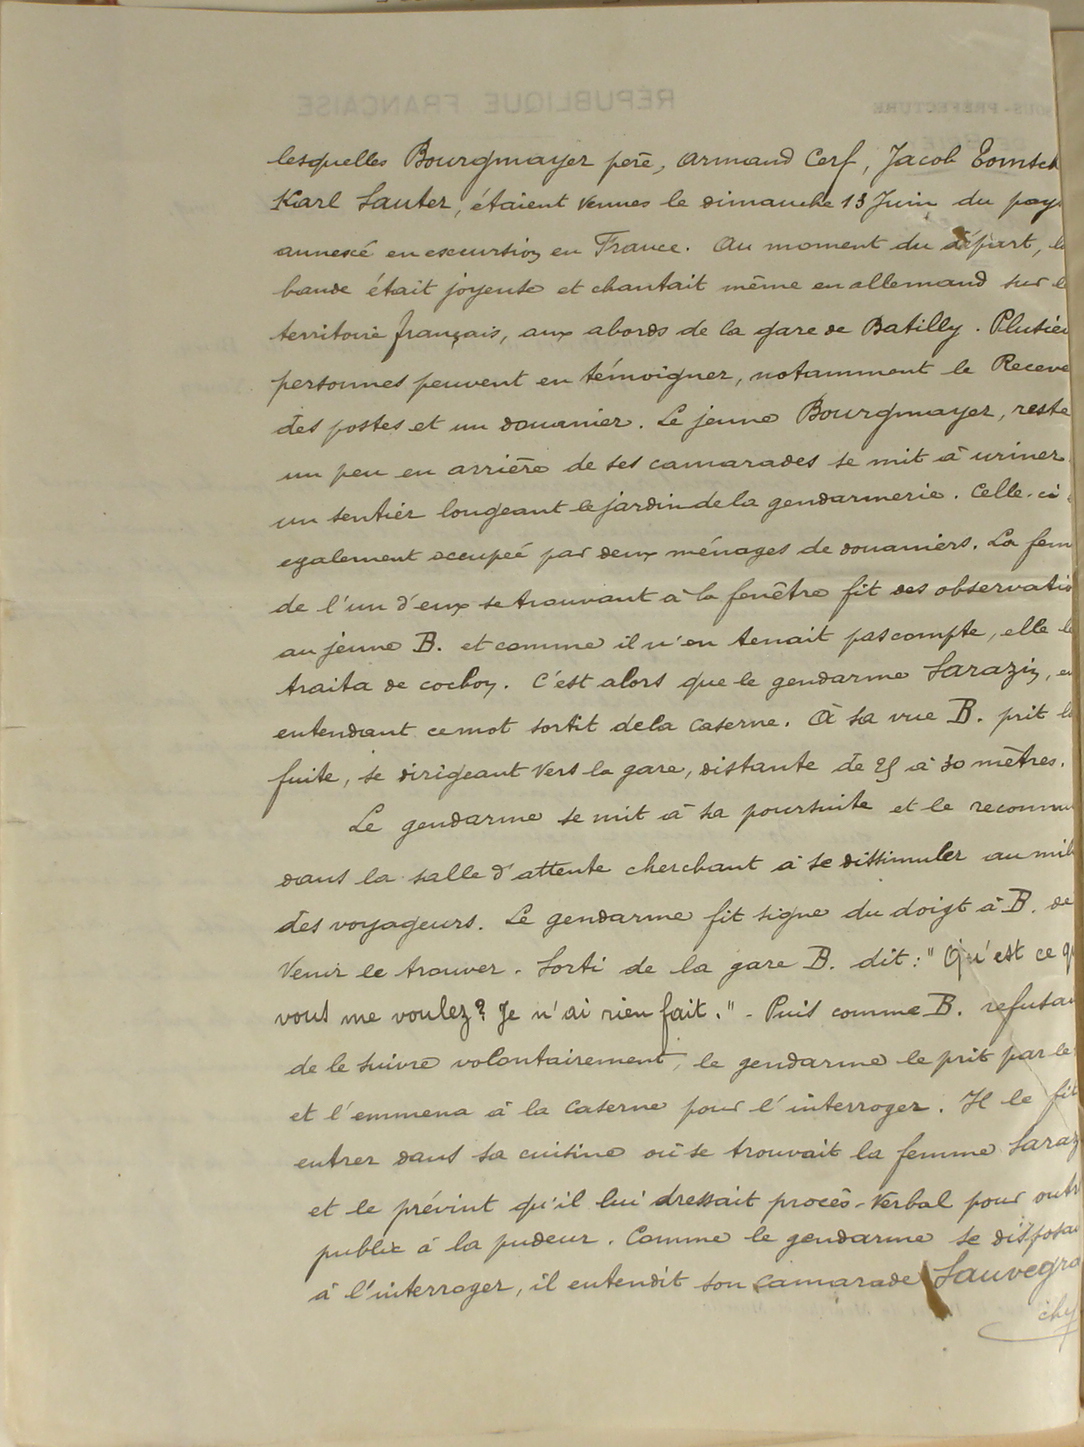 lesquelles Bourgmayer père, Armand Cerf, Jacob
Karl Sauter, étaient venues le dimanche 13 Juin du pay
annexé en excursion en France. Au moment du départ, l
bande était joyeuse et chantait même en allemand sur l
territoire français, aux abords de la gare de Batilly. Plusieu
personnes peuvent en témoigner, notamment le Receve
des postes et un douanier. Le jeune Bourgmayer, resté
un peu en arrière de ses camarades se mit à uriner
un sentier longeant le jardin de la gendarmerie. Celle-ci
egalement occupeé par deux ménages de douaniers. La fem
de l'un d'eux se trouvant à la fenêtre fit des observatio
au jeune B. et comme il n'en tenait pas compte, elle l
traita de cochon. C'est alors que le gendarme Sarazin, en
entendant ce mot sortit de la caserne. A sa vue B. prit l
fuite, se dirigeant vers la gare, distante de 25 à 30 mètres.
Le gendarme se mit à sa poursuite et le reconnu
dans la salle d'attente cherchant à se dissimuler au mil
des voyageurs. Le gendarme fit signe du doigt à B. de
venir le trouver. Sorti de la gare B. dit : " Qu'est ce q
vous me voulez? Je n'ai rien fait." - Puis comme B. refusa
de le suivre volontairement, le gendarme le prit par le
et l'emmena à la caserne pour l'interroger. Il le fit
entrer dans sa cuisine où se trouvait la femme Saraz
et le prévint qu'il lui dressait procès-verbal pour outr
public à la pudeur. Comme le gendarme se disposa
à l'interroger, il entendit son camarade Sauvegra
RÉPUBLIQUE FRANÇAISE
SOUS-PRÉFECTURE